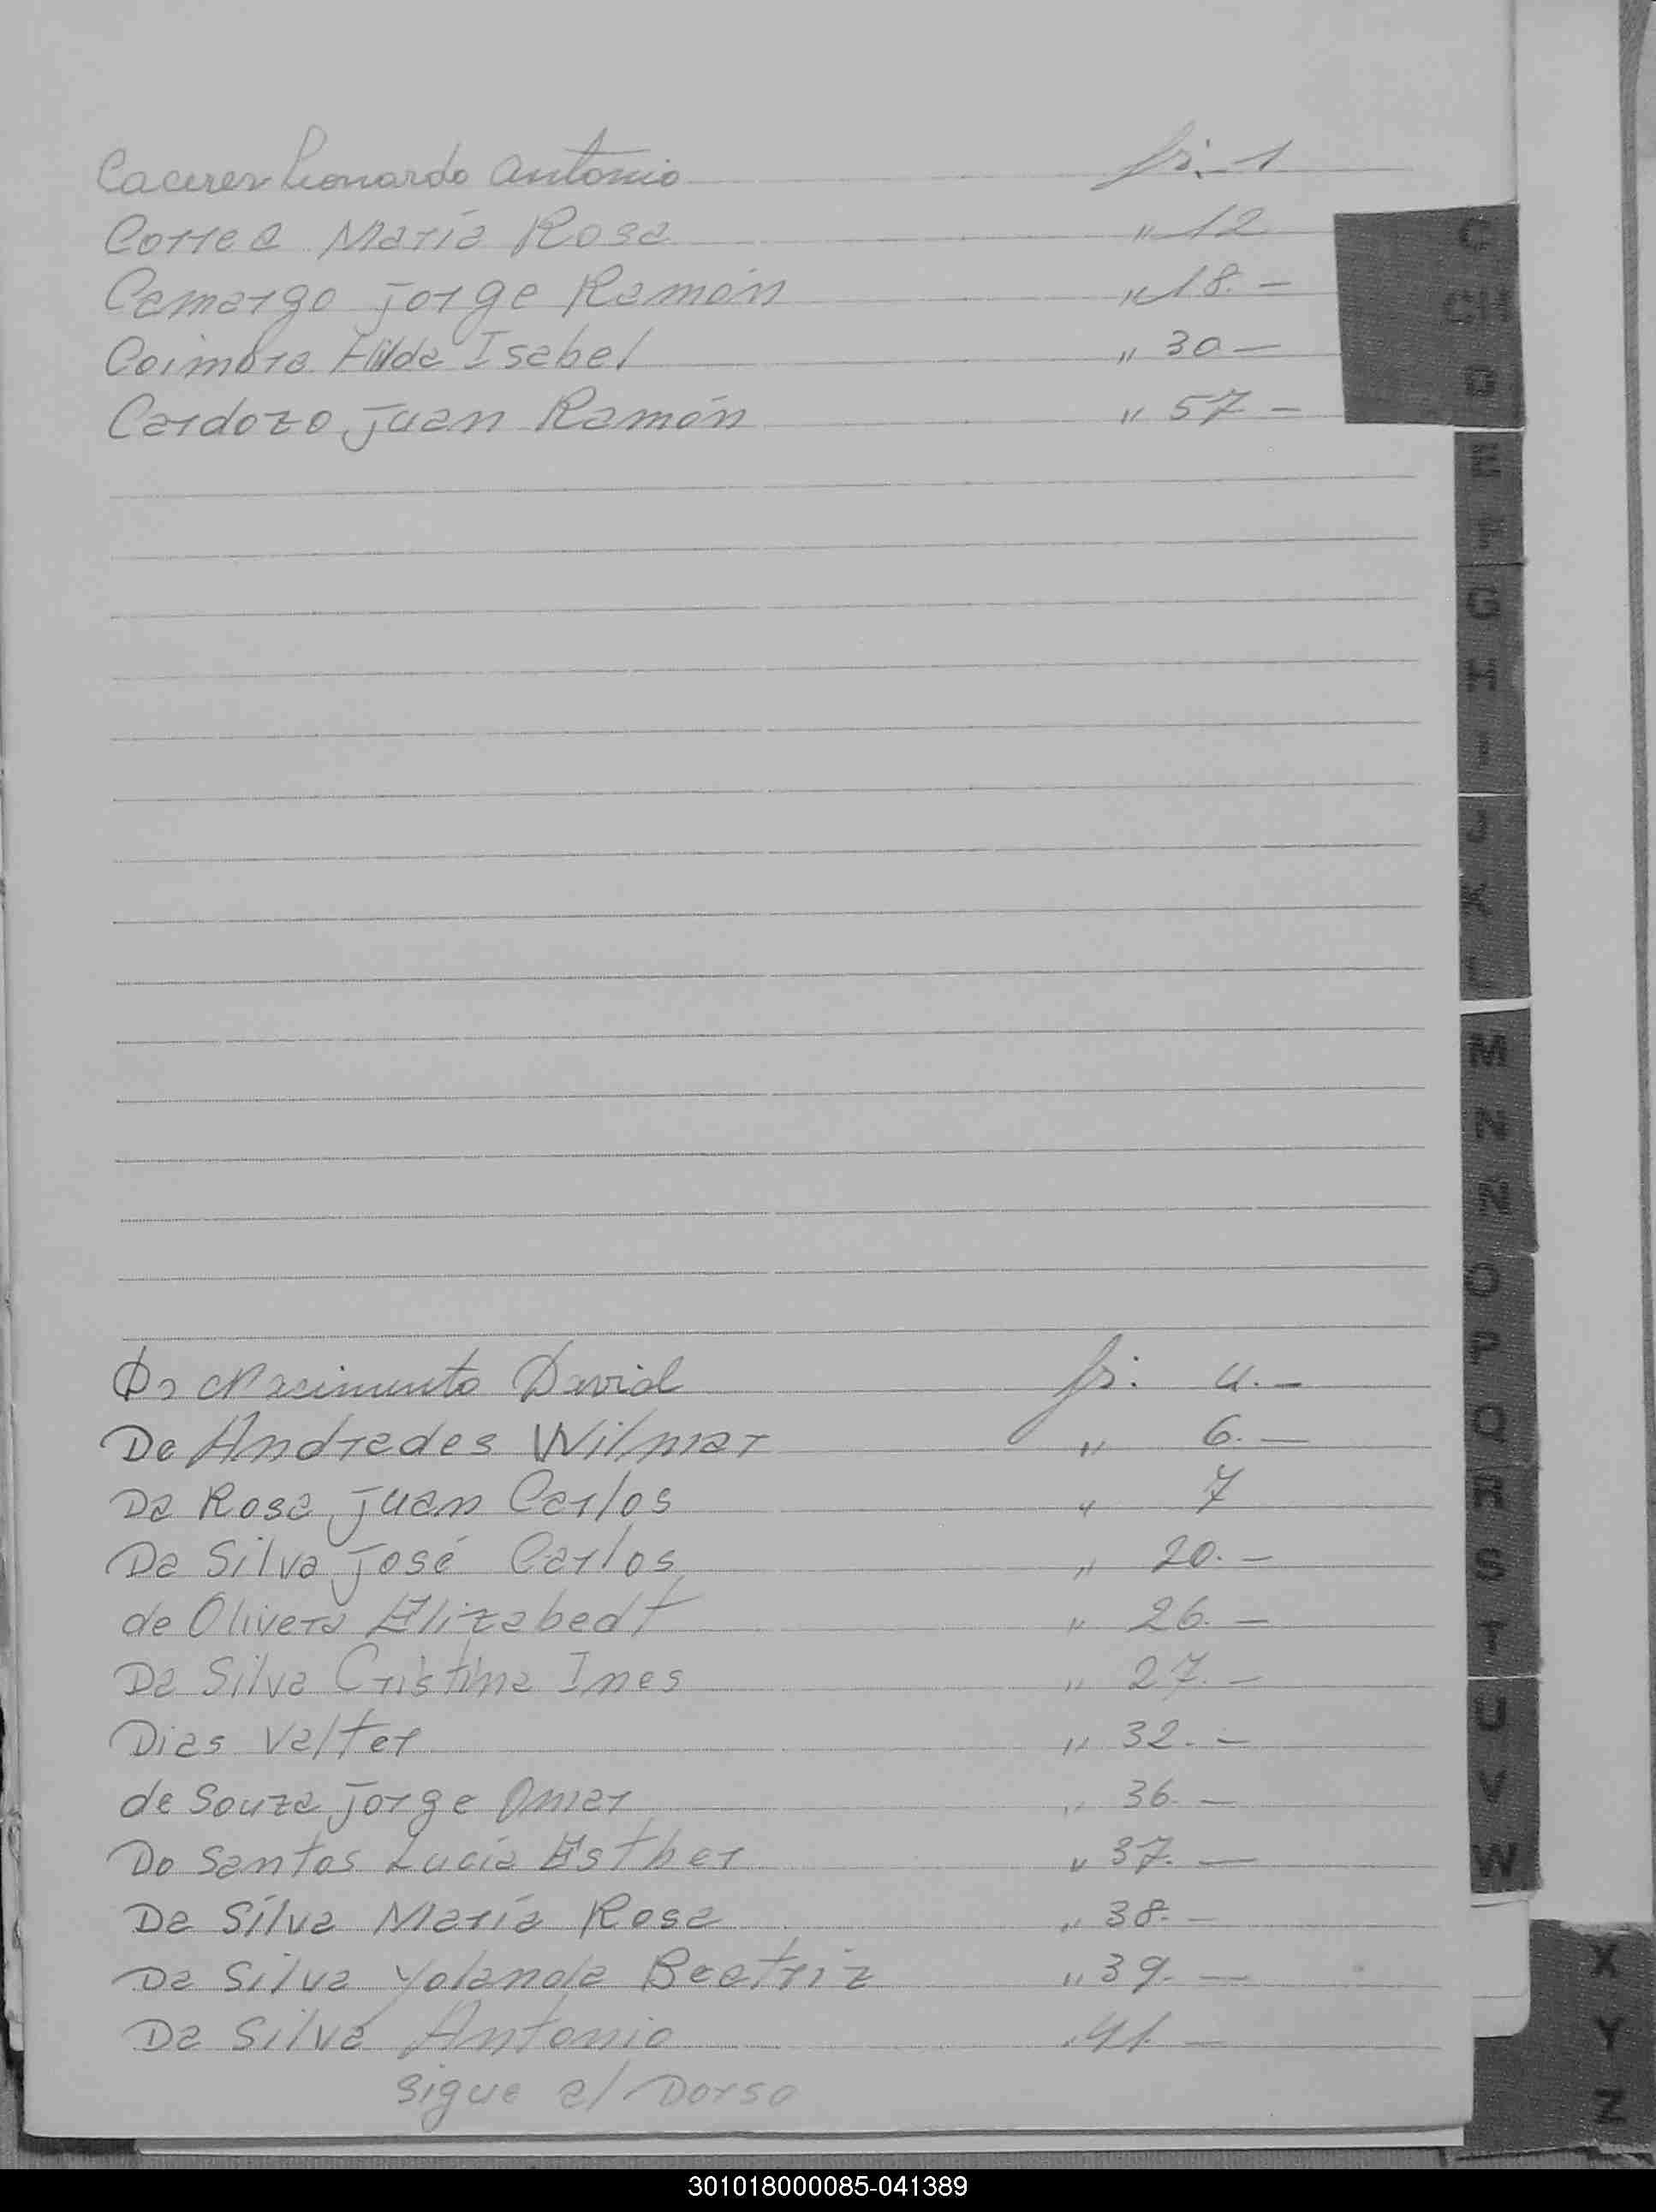 Caceres Leonardo Antonio fs. 1
Correa María Rosa " 12
Camargo Jorge Ramón " 18.-
Coimbra Hilda Isabel " 30-
Cardozo Juan Ramón " 57-
Da Nacimento David fs: 4.-
De Andrades Wilmar " 6.-
Da Rosa Juan Carlos " 7
Da Silva José Carlos " 20.-
de Olivera Elizabedt " 26.-
Da Silva Cristina Ines " 27.-
Dias Valter " 32.-
de Souza Jorge Omar " 36.-
Do Santos Lucía Esther " 37.-
Da Silva María Rosa " 38.-
Da Silva Yolanda Beatriz " 39.-
Da Silva Antonio " 41.-
sigue al Dorso
C
CH
D
E
F
G
H
I
J
K
L
M
N
Ñ
O
P
Q
R
S
T
U
V
W
X
Y
Z
301018000085-041389